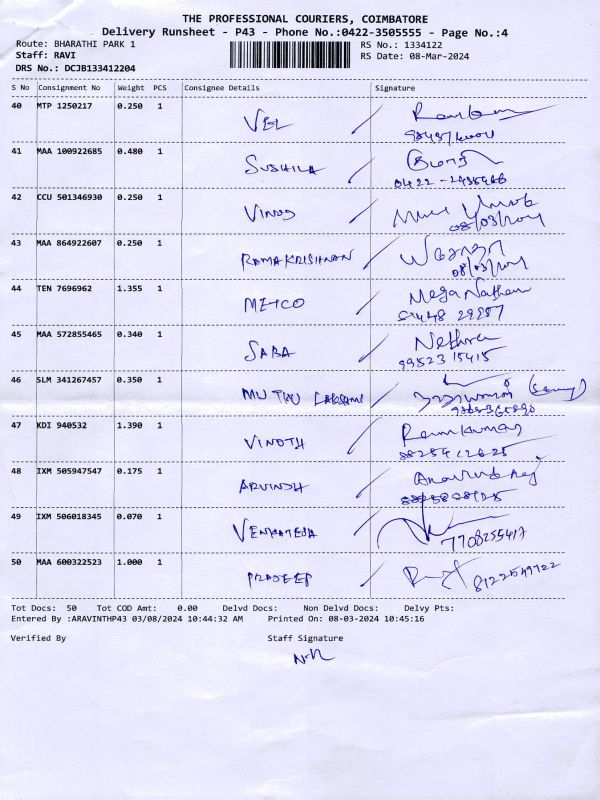 THE PROFESSIONAL COURIERS, COIMBATORE
Delivery Runsheet - P43 - Phone No.:0422-3505555 - Page No.:4
Route: BHARATHI PARK 1 RS No.: 1334122
Staff: RAVI RS Date: 08-Mar-2024
DRS No.: DCJB133412204
S No Consignment No Weight PCS Consignee Details Signature
40 MTP 1250217 0.250 1
VEL
41 MAA 100922685 0.480 1
SUSHILA
0422-2435466
42 CCU 501346930 0.250 1
VINOD
08/03/2024
43 MAA 864922607 0.250 1
RAMAKRISHNAN
08/03/2024
44 TEN 7696962 1.355 1
METCO Meganathan
45 MAA 572855465 0.340 1
SABA Nethra
99523 15415
46 SLM 341267457 0.350 1
MUTHU LAKSHMI
47 KDI 940532 1.390 1
VINOTH Ramkumar
48 IXM 505947547 0.175 1
ARVINDH
49 IXM 506018345 0.070 1
VENKATESA
7708255417
50 MAA 600322523 1.000 1
PRADEEP
Tot Docs: 50 Tot COD Amt: 0.00 Delvd Docs: Non Delvd Docs: Delvy Pts:
Entered By :ARAVINTHP43 03/08/2024 10:44:32 AM Printed On: 08-03-2024 10:45:16
Verified By Staff Signature